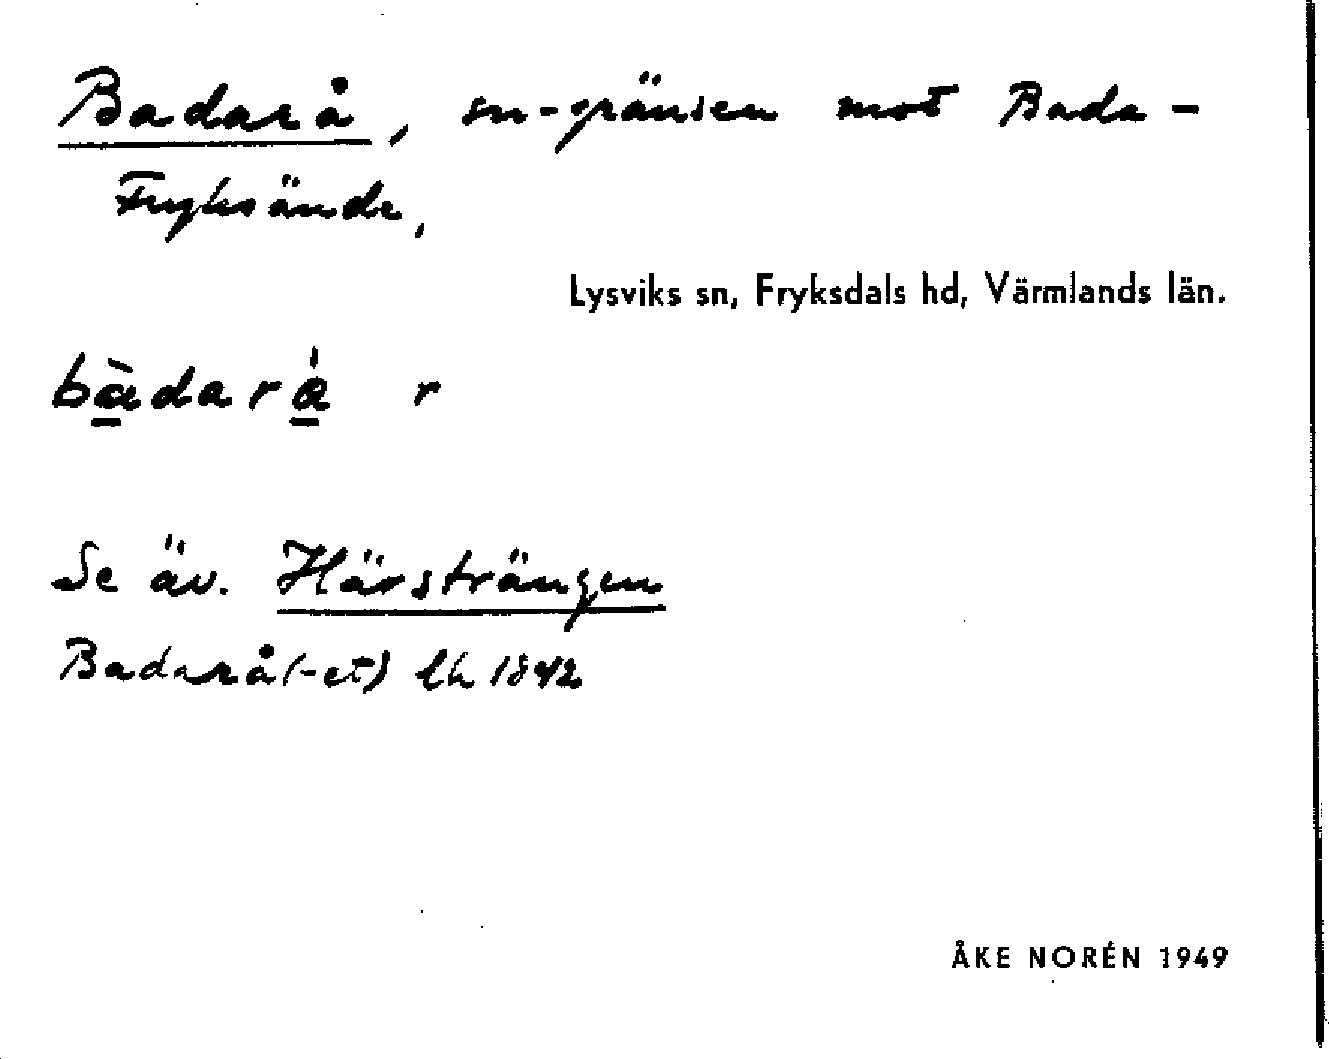 Badarå, sn-gränsen mot Bada -
Fryksände,
Lysviks sn, Fryksdals hd, Värmlands län.
bàdarå̀ r
Se äv. Härsträngen
Badarå(-et) lh 1842
ÅKE NORÉN 1949